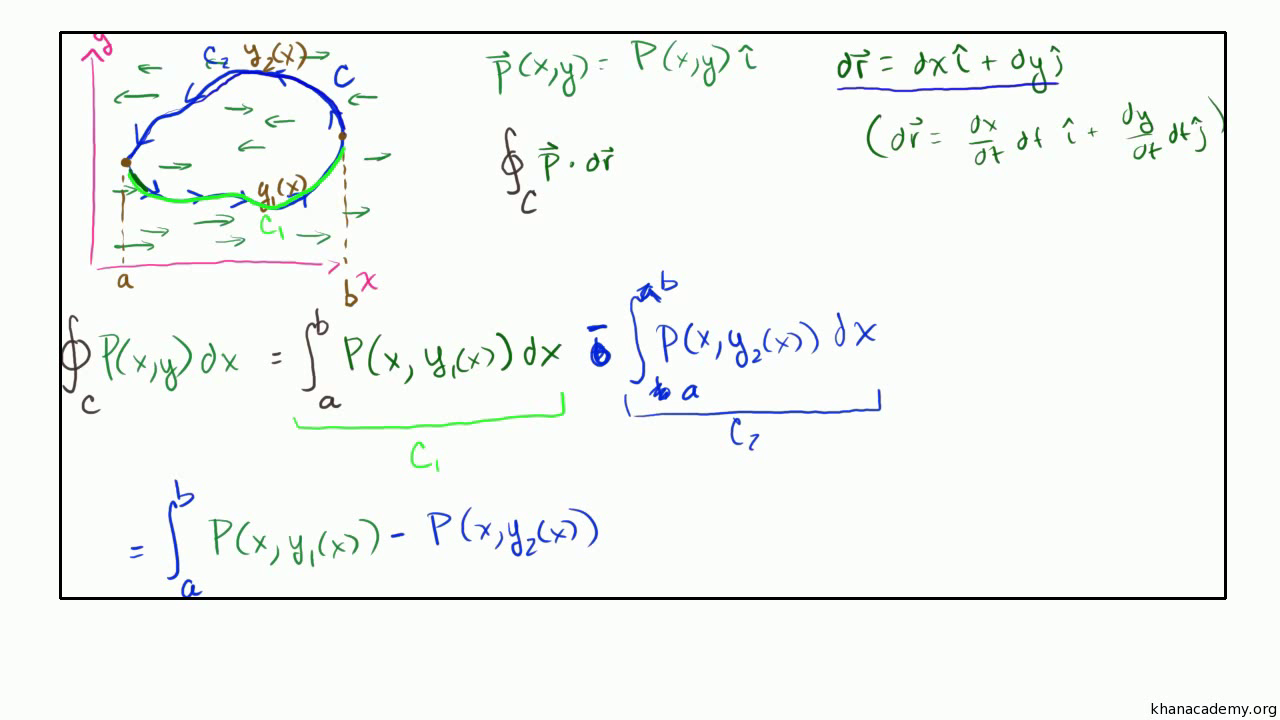 y
C₂ y₂(x)
C
y₁(x)
C₁
a
b x
P⃗(x,y) = P(x,y) î
dr⃗ = dx î + dy ĵ
(dr⃗ = dx/dt dt î + dy/dt dt ĵ)
∮_C P⃗ · dr⃗
∮_C P(x,y) dx = ∫_a^b P(x, y₁(x)) dx - ∫_a^b P(x, y₂(x)) dx
C₁
C₂
= ∫_a^b P(x, y₁(x)) - P(x, y₂(x))
khanacademy.org